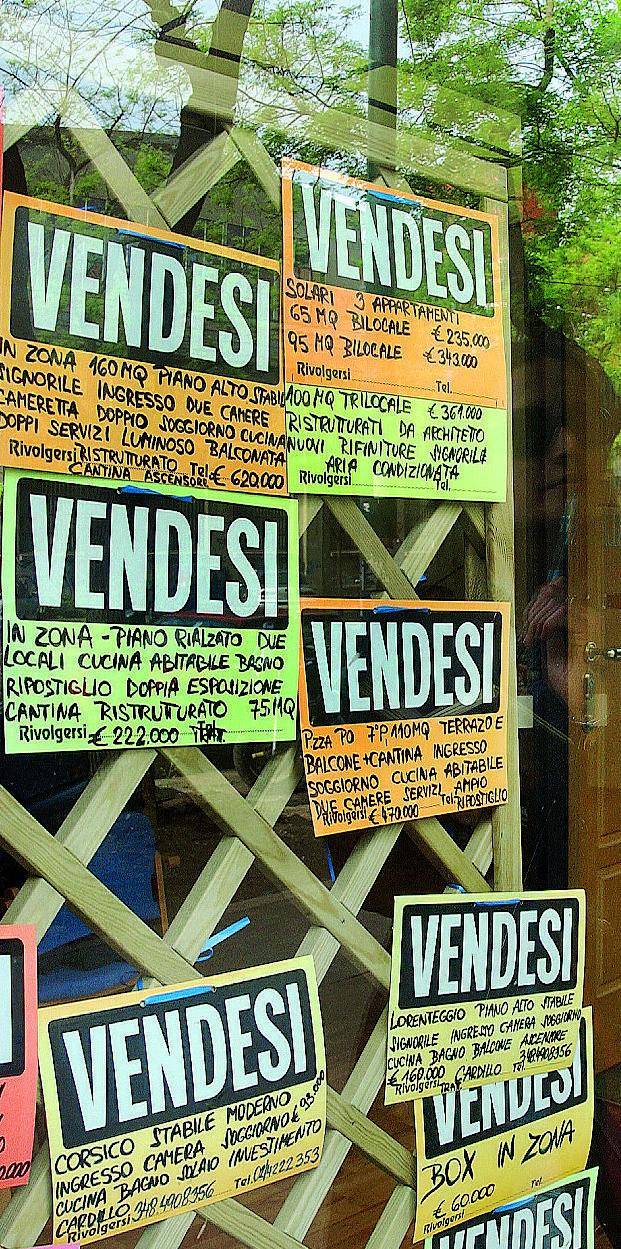 VENDESI
IN ZONA 160 MQ PIANO ALTO STABILE
SIGNORILE INGRESSO DUE CAMERE
CAMERETTA DOPPIO SOGGIORNO CUCINA
DOPPI SERVIZI LUMINOSO BALCONATA
Rivolgersi RISTRUTTURATO Tel. € 620.000
CANTINA ASCENSORE
VENDESI
SOLARI 3 APPARTAMENTI
65 MQ BILOCALE € 235.000
95 MQ BILOCALE € 343.000
Rivolgersi Tel.
100 MQ TRILOCALE € 361.000
RISTRUTTURATI DA ARCHITETTO
NUOVI RIFINITURE SIGNORILI
ARIA CONDIZIONATA
Rivolgersi Tel.
VENDESI
IN ZONA - PIANO RIALZATO DUE
LOCALI CUCINA ABITABILE BAGNO
RIPOSTIGLIO DOPPIA ESPOSIZIONE
CANTINA RISTRUTTURATO 75 MQ
Rivolgersi € 222.000 TRAT.
VENDESI
P.zza PO 7°P, 110 MQ TERRAZO E
BALCONE + CANTINA INGRESSO
SOGGIORNO CUCINA ABITABILE
DUE CAMERE SERVIZI AMPIO
Rivolgersi € 470.000 Tel. RIPOSTIGLIO
VENDESI
LORENTEGGIO PIANO ALTO STABILE
SIGNORILE INGRESSO CAMERA SOGGIORNO
CUCINA BAGNO BALCONE ASCENSORE
€ 160.000 CARDILLO 348.4908356
Rivolgersi TRAT. Tel.
VENDESI
CORSICO STABILE MODERNO
INGRESSO CAMERA SOGGIORNO
CUCINA BAGNO SOLAIO INVESTIMENTO
CARDILLO
Rivolgersi 348.4908356 Tel.
VENDESI
BOX IN ZONA
€ 60.000
Rivolgersi Tel.
VENDESI